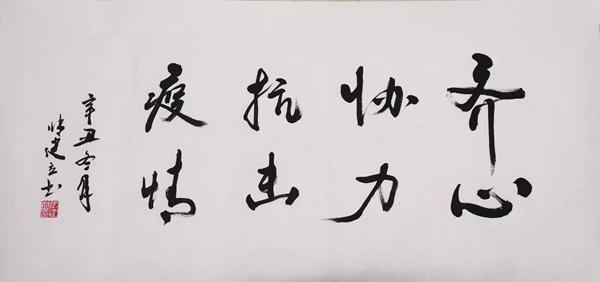 齐心
协力
抗击
疫情
辛丑冬月
建立书